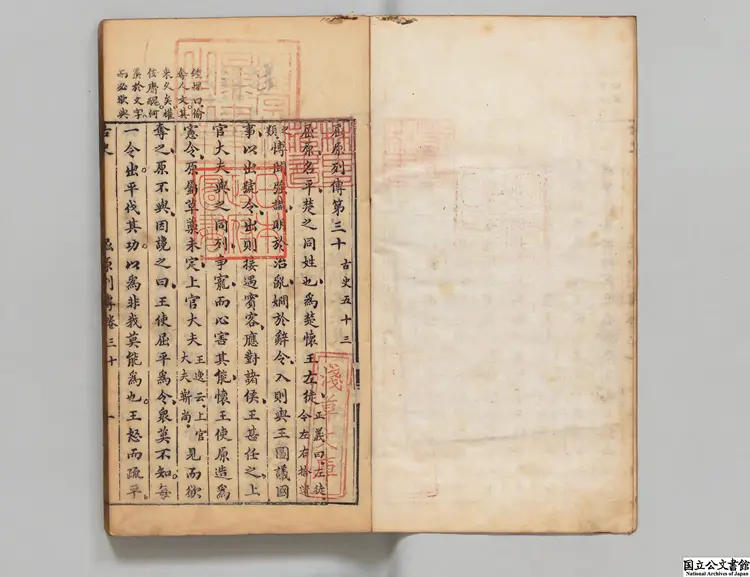 異於文字
而必欲與
屈原列傳第三十 古史五十三
屈原名平楚之同姓也爲楚懷王左徒正義曰左徒今左右拾遺
之類博聞強識明於治亂嫺於辭令入則與王圖議國
事以出號令出則接遇賓客應對諸侯王甚任之上
官大夫與之同列爭寵而心害其能懷王使原造爲
憲令原屬草藁未定上官大夫王逸云上官大夫靳尚見而欲
奪之原不與因讒之曰王使屈平爲令衆莫不知每
一令出平伐其功以爲非我莫能爲也王怒而疏平
古史 屈原列傳卷三十 一
淺草文庫
国立公文書館
National Archives of Japan